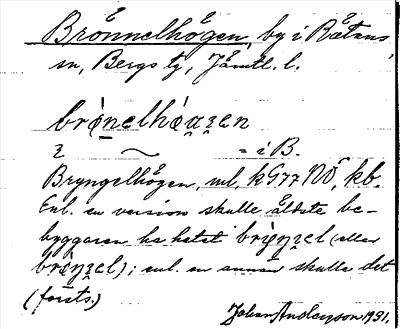 Brönnelhögen, by i Råtans
sn, Bergs tg, Jämtl. l.
brò̤nelhó̤gen
i B.
Bryngelhögen, ml, kG77 NÖ, kb.
Enl. en version skulle äldste be-
byggaren ha hetat (eller
); enl. en annan skulle det
(först.)
Johan Andersson 1931.